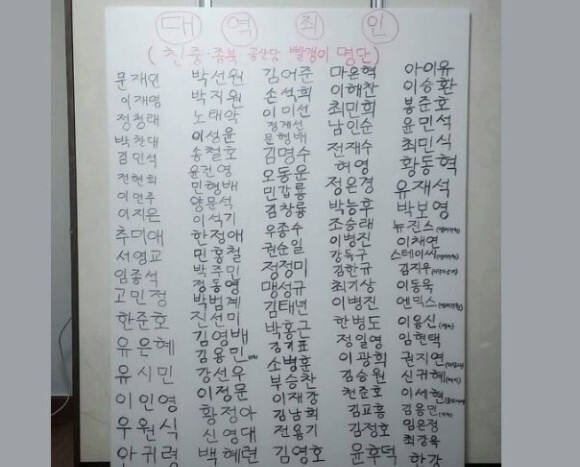 대 역 죄 인
(친중·종북 공산당 빨갱이 명단)
문재인
이재명
정청래
박찬대
김민석
전현희
이언주
이지은
추미애
서영교
임종석
고민정
한준호
유은혜
유시민
이인영
우원식
안귀령
박선원
박지원
노태악
이성윤
송철호
윤건영
민형배
양문석
이석기
한정애
민홍철
박주민
정동영
박범계
진선미
김영배
김용민
강선우
이정문
황정아
신영대
백혜련
김어준
손석희
이미선
정계선
문형배
김명수
오동운
민갑룡
김창룡
우종수
권순일
정정미
맹성규
김태년
박홍근
김기표
소병훈
부승찬
이재강
김남희
전용기
김영호
마은혁
이해찬
최민희
남인순
전재수
허영
정은경
박능후
조승래
이병진
강득구
김한규
최기상
이병진
한병도
정일영
이광희
김승원
천준호
김교흥
김정호
윤후덕
아이유
이승환
봉준호
윤민석
최민식
황동혁
유재석
박보영
뉴진스
이채연
스테이씨
김지우
이동욱
엔믹스
이용신
임현택
권지연
신귀혜
이세현
김용민
임은정
최강욱
한강